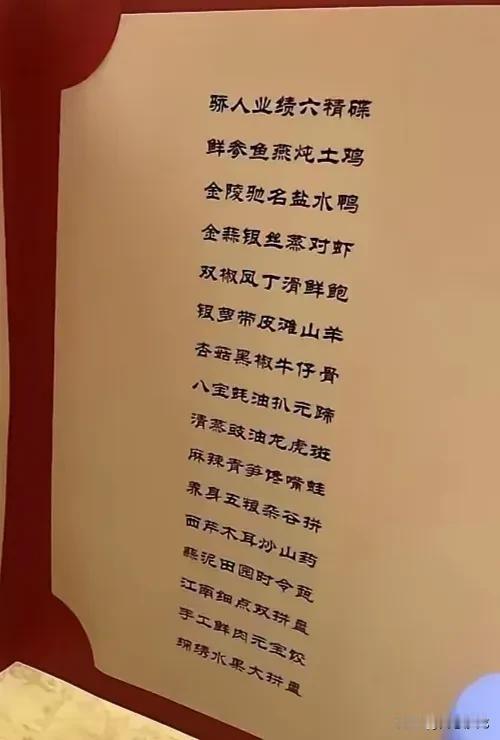 骄人业绩六精碟
鲜参鱼燕炖土鸡
金陵驰名盐水鸭
金蒜银丝蒸对虾
双椒凤丁滑鲜鲍
银萝带皮滩山羊
杏菇黑椒牛仔骨
八宝蚝油扒元蹄
清蒸豉油龙虎斑
麻辣青笋馋嘴蛙
养身五粮杂谷拼
西芹木耳炒山药
蒜泥田园时令蔬
江南细点双拼盘
手工鲜肉元宝饺
锦绣水果大拼盘